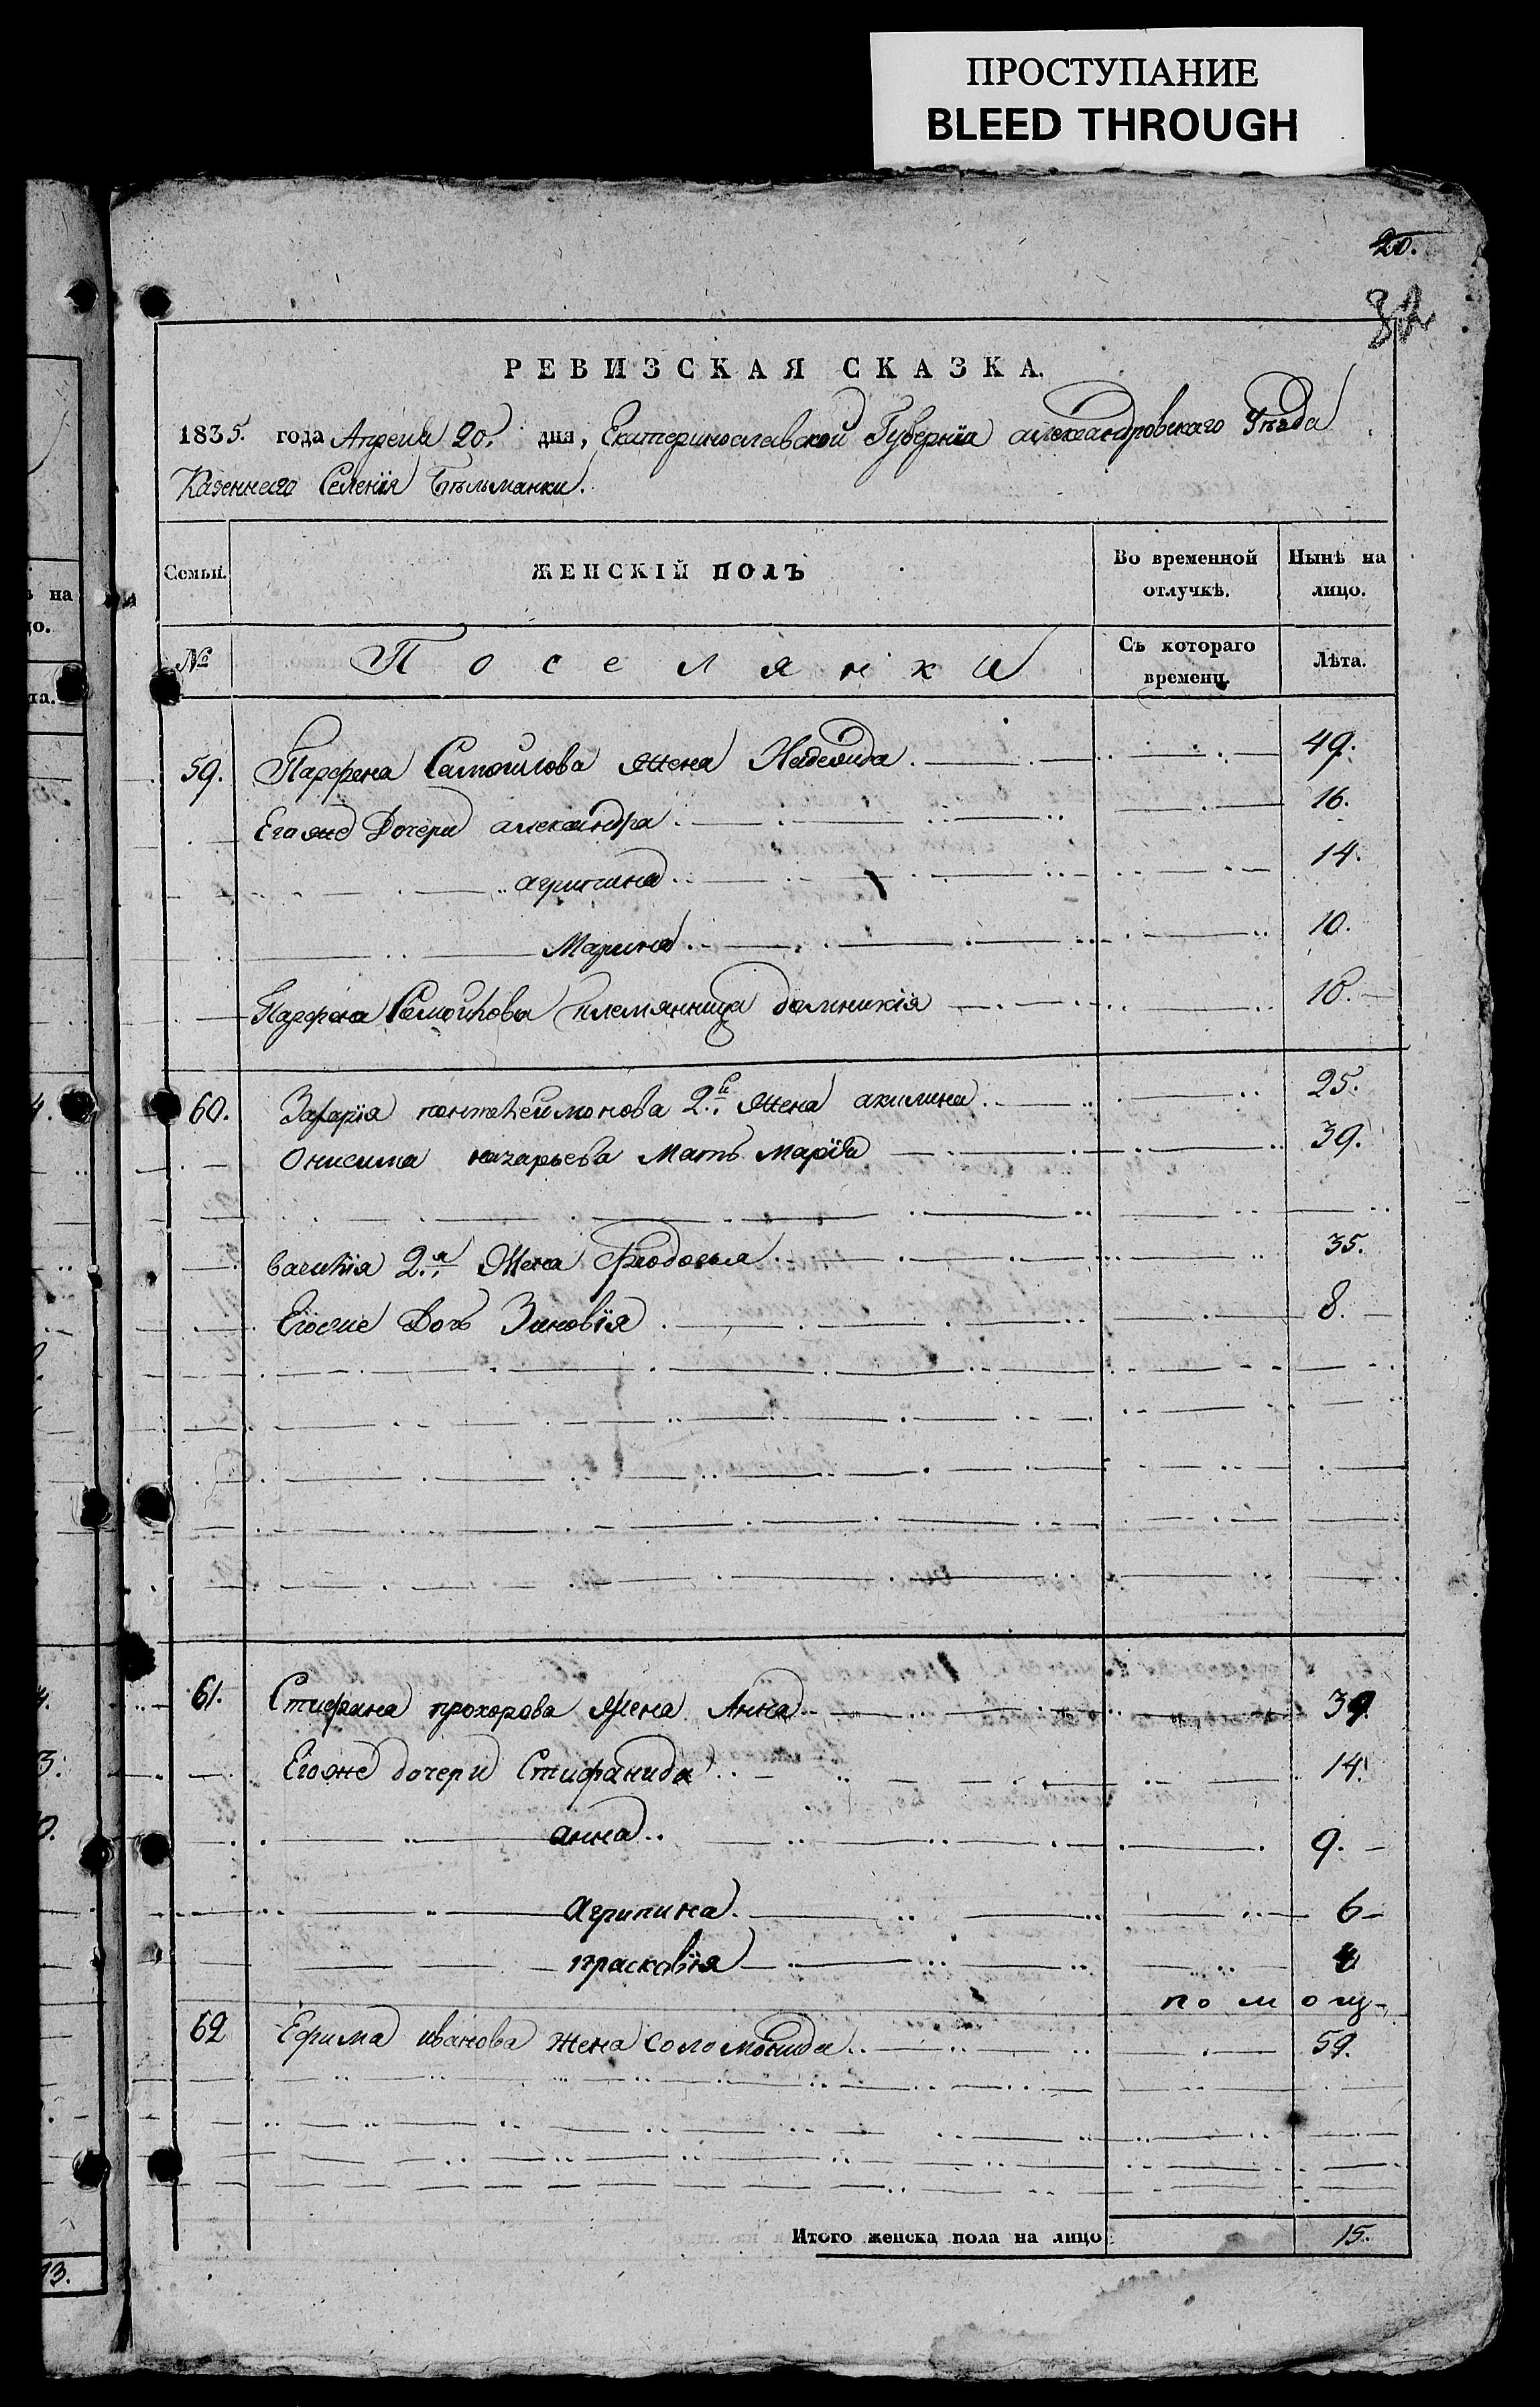 ПРОСТУПАНИЕ
BLEED THROUGH
20.
РЕВИЗСКАЯ СКАЗКА.
1835. года Апреля 20. дня, Екатеринославской Губернїи александровскаго Уезда
Казеннаго Селенїя Бельманки.
Семьи. ЖЕНСКІЙ ПОЛЪ Во временной отлучкѣ. Нынѣ на лицо.
№ Поселянки Съ котораго времени. Лѣта.
59. Парфена Самоилова жена Надежда 49.
Егоже Дочери александра 16.
агрипина 14.
Марина 10.
Парфена Самоилова племянница домникія 18.
60. Захарїя пантелеимонова 2.й жена акилина 25.
Онисима назарьева Мать Марїя 39.
василїя 2.я Жена Феодосья 35.
Егоже Дочь Зиновїя 8.
61. Стифана прохорова жена Анна 39
Егоже дочери Стифанида 14.
анна 9.
агрипина 6
прасковїя 4
помощ
62 Ефима иванова жена соломонида 59.
Итого женска пола на лицо 15.
ь на
до.
та.
4.
3.
0.
13.